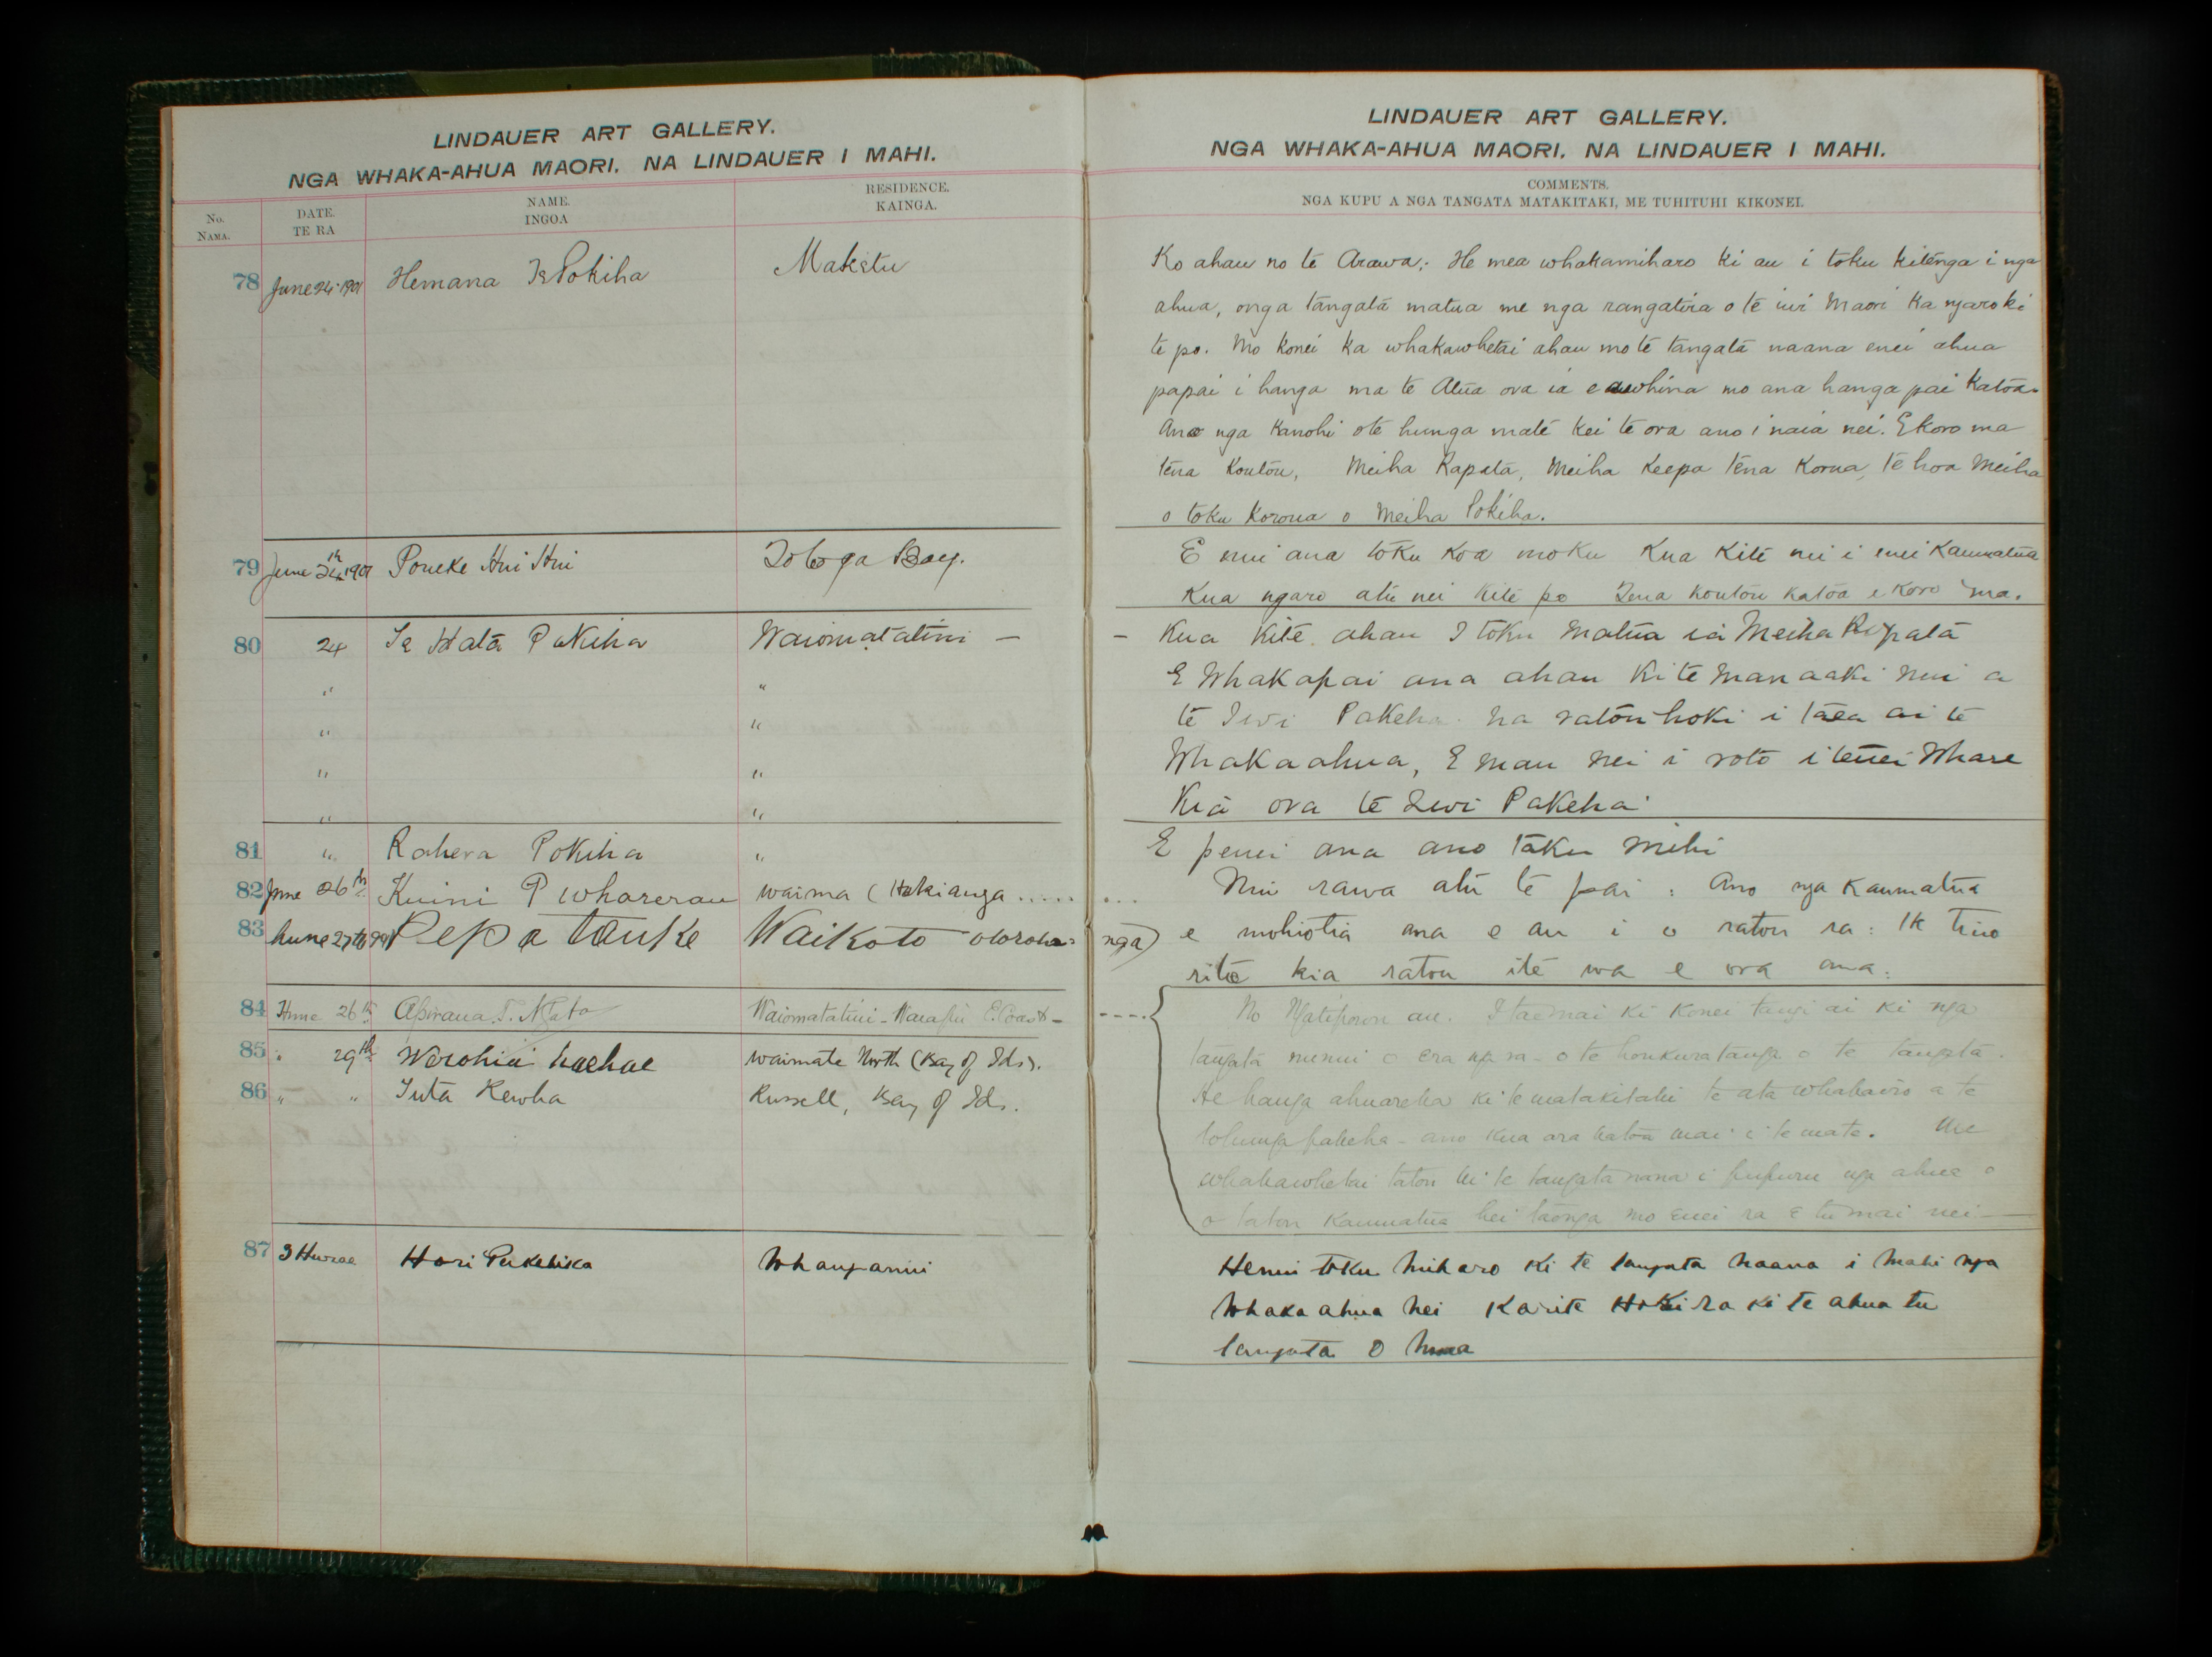 LINDAUER ART GALLERY.
NGA WHAKA-AHUA MAORI. NA LINDAUER I MAHI.
No. NAMA.
DATE. TE RA
NAME. INGOA
RESIDENCE. KAINGA.
78 June 24 1901 Hemana Te Pokiha Maketu
79 June 24th 1901 Poneke Hui Hui Tologa Bay.
80 24 Te Wata Pokiha Waiomatatini —
" "
" "
" "
" "
81 " Rahera Pokiha "
82 June 26th Kuini P Wharerau Waima (Hokianga .....
83 hune 27th 1901 Pepa tauke Waikato otoroha=
84 Hune 26th Apirana T. Ngata Waiomatatini - Waiapu E. Coast -
85 " 29th haehae Waimate North (Bay of Ids).
86 " " Iuta Kewha Russell, Bay of Ids.
87 3 Hurae Hori Pukehika Whanganui
LINDAUER ART GALLERY.
NGA WHAKA-AHUA MAORI. NA LINDAUER I MAHI.
COMMENTS.
NGA KUPU A NGA TANGATA MATAKITAKI, ME TUHITUHI KIKONEI.
Ko ahau no te Arawa; He mea whakamiharo ki au i toku kitenga i nga
ahua, onga tangata matua me nga rangatira o te iwi Maori ka ngaro ki
te po. Mo konei ka whakawhetai ahau mo te tangata naana enei ahua
papai i hanga ma te Atua ora ia e awhina mo ana hanga pai katoa.
Ano nga kanohi ote hunga mate kei te ora ano i naia nei. E koro ma
tena koutou, Meiha Rapata, Meiha Keepa tena korua, te hoa Meiha
o toku koroua o Meiha Pokiha.
E nui ana toku koa moku kua kite nei i enei Kaumatua
Kua ngaro atu nei kite po Tena koutou katoa e koro ma.
- Kua kite ahau I toku matua ia Meiha Ropata
E Whakapai ana ahau ki te Manaaki nui a
te Iwi Pakeha. na ratou hoki i taea ai te
Whakaahua, E mau nei i roto i tenei Whare
Kia ora te Iwi Pakeha
E penei ana ano taku mihi
... Nui rawa atu te pai : Ano nga Kaumatua
nga) e mohiotia ana e au i o ratou ra : Ik tino
rite kia ratou ite wa e ora ana :
No Ngatiporou au. I tae mai ki konei tangi ai ki nga
tangata nunui o era nga ra - o te houkuratanga o te tangata.
He hanga ahuareka ki te matakitaki te ata whakairo a te
tohunga pakeha - ano kua ara katoa mai i te mate. Me
whakawhetai tatou ki te tangata nana i pupuru nga ahua o
o tatou Kaumatua hei taonga mo enei ra e tu mai nei —
Henui toku miharo ki te tangata naana i mahi nga
Whaka ahua nei Karite Hoki ra ki te ahua tu
tangata O